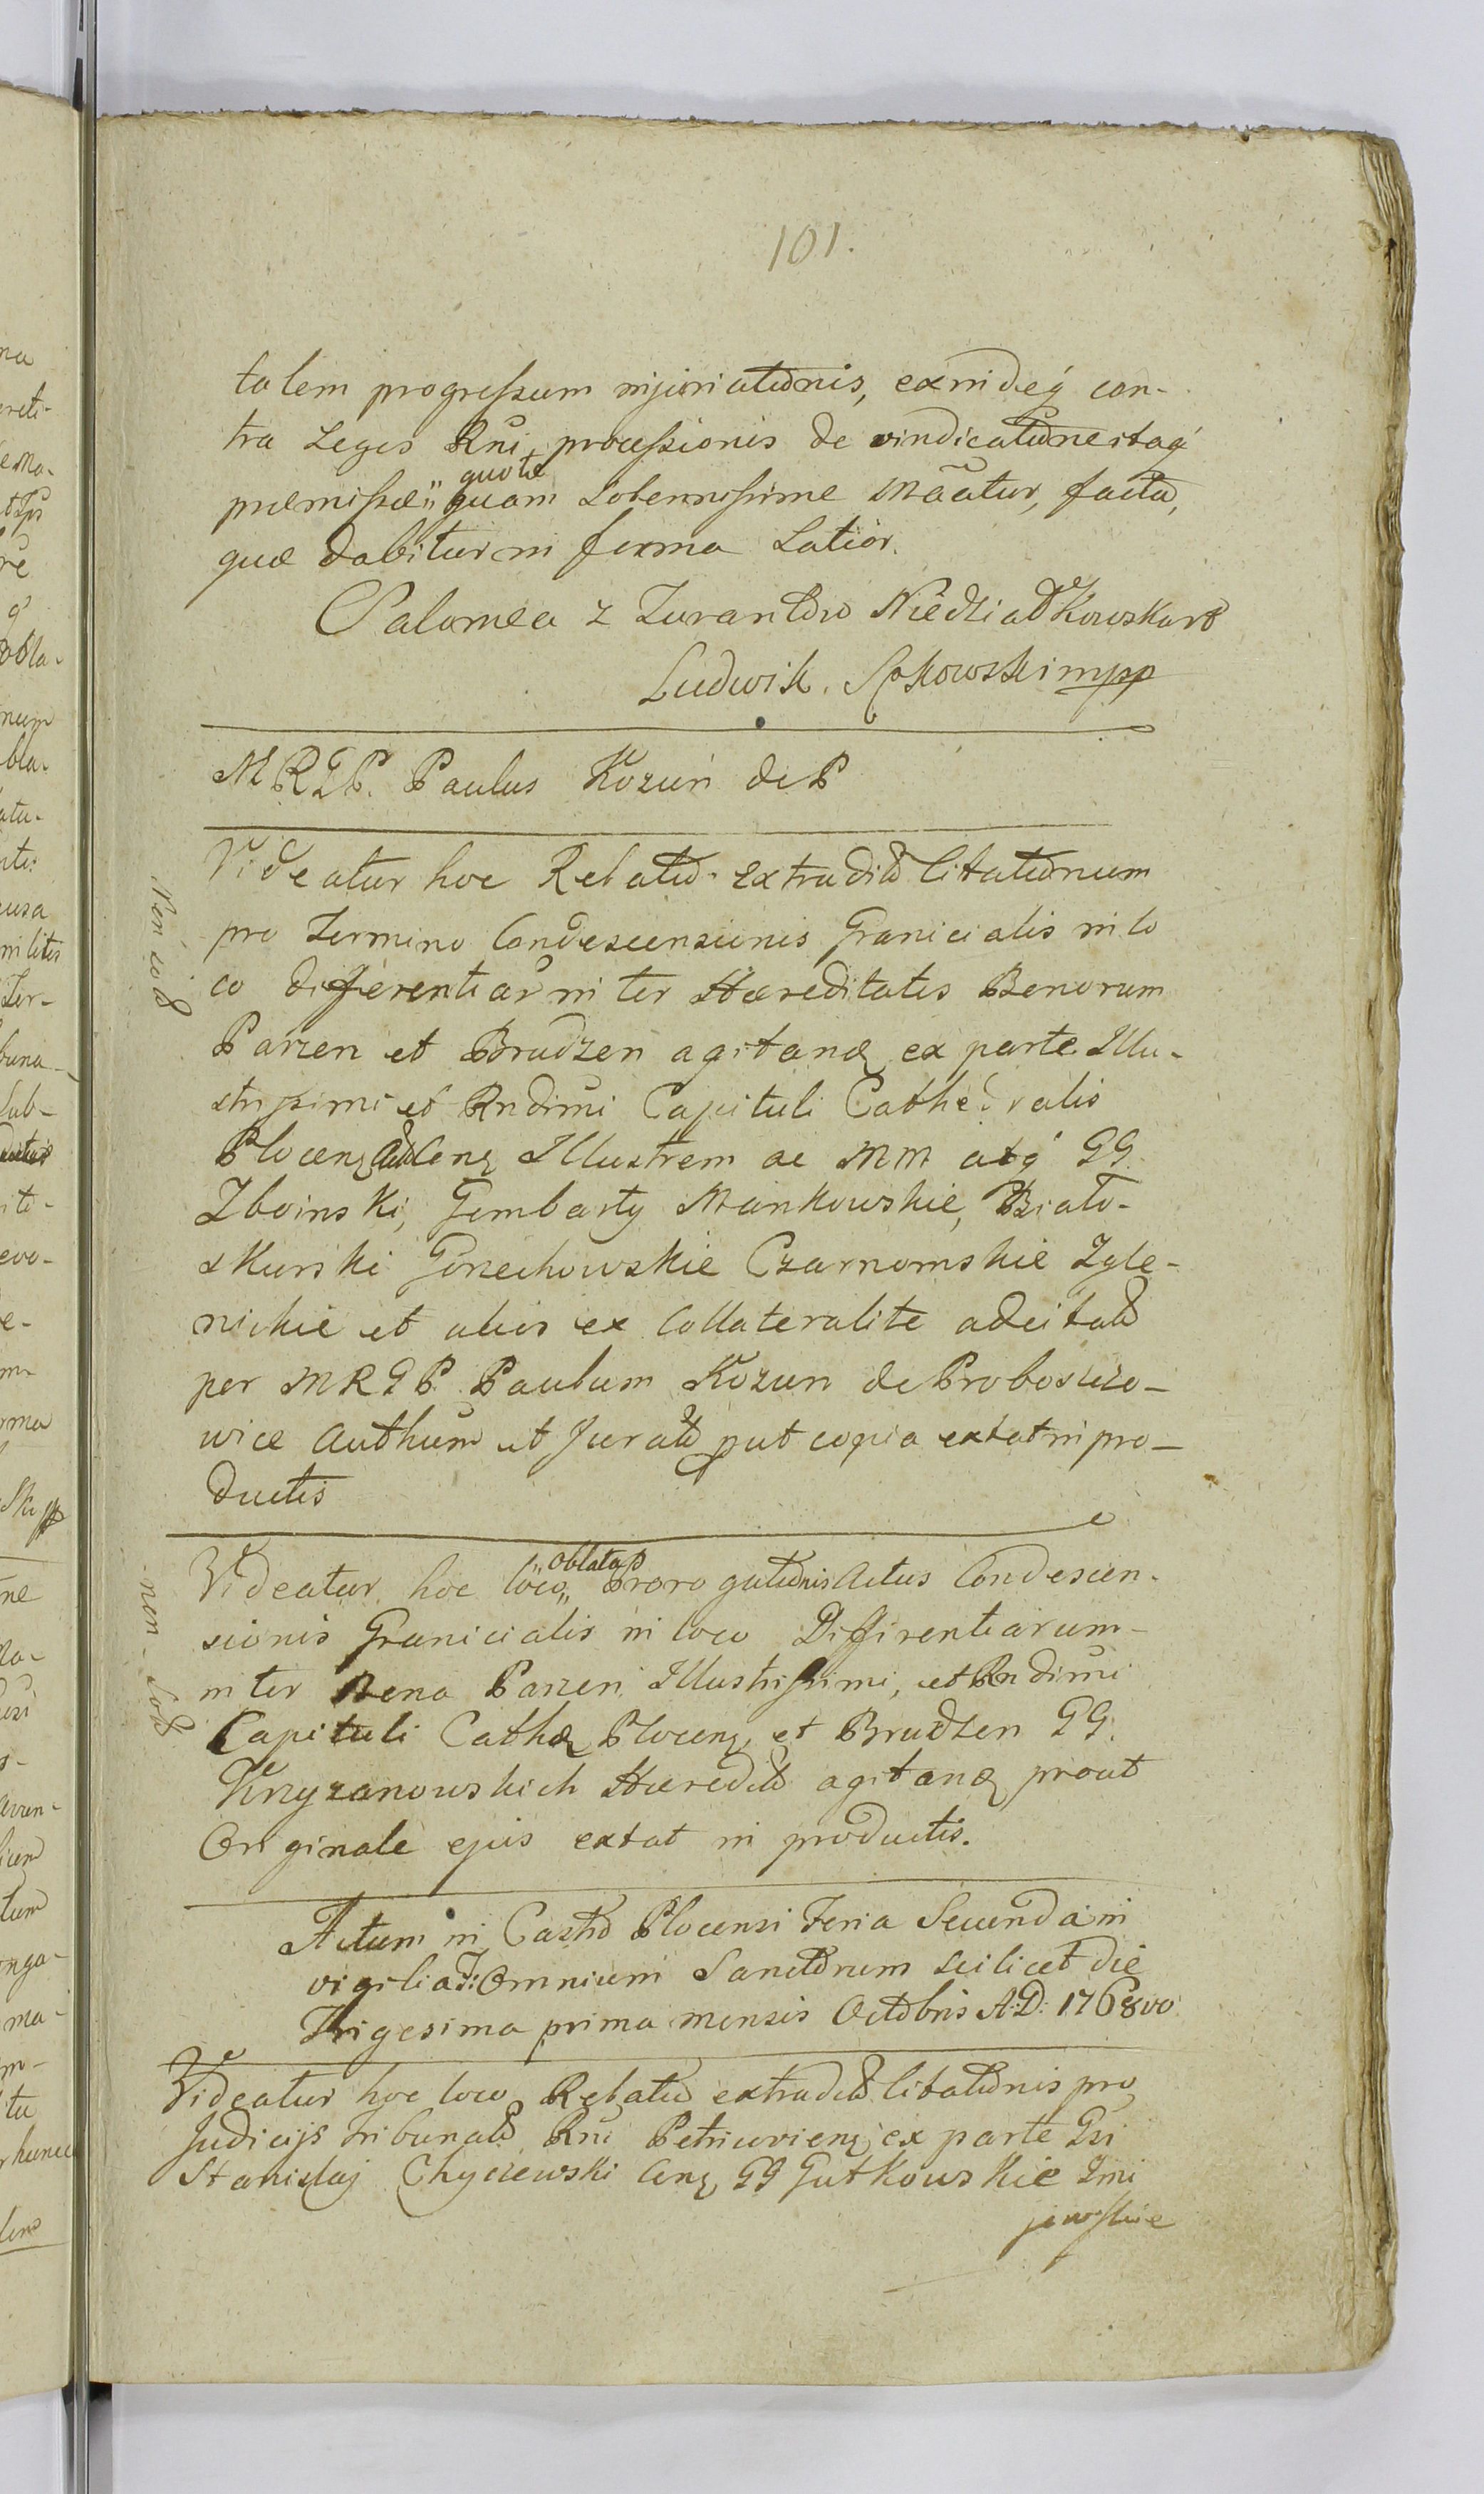 101.
talem progressum injuriationis, exindeq con-
tra Leges Rni processionis de vindicationeitaq
præmissæ quotæ quam Solennissime Mãatur, facta,
quæ dabitur in forma Latior.
Salomea z Zurawskow Niedziadkowska
Ludwik Sokowski mpp
MRGP. Paulus Kozun de P
Videatur hoc Relatio Extradit Citationum
pro Termino Condescensionis Granicialis in lo
co differentiar inter Hæreditates Bonorum
Parzen et Brudzen agitand ex parte Illu-
strissimi et Rndimi Capituli Cathedralis
Plocen Illustrem ac MM atq GG
Zboinski, Gembarty Mankowskie, Biało-
skurski Gorzechowskie Czarnomskie Zgle-
nickie et alios ex Collateralite adcitat
per MRGP. Paulum Kozun de Proboszczo-
wice Authum et Jurat put copia extat in pro-
ductis
Non sol
Videatur hoc loco oblata Prorogationis Actus Condescen-
sionis Granicialis in loco Differentiarum
inter Bona Parzen Illustrissimi, et Rndimi
Capituli Cathed Plocen, et Brudzen GG.
Krzyzanowskich Hæredit agitand prout
Originale ejus extat in productis.
non sol
Actum in Castro Plocensi Feria Secunda in
vigilia F: Omnium Sanctorum scilicet die
Trigesima prima mensis Octobris A: D: 1768vo
Videatur hoc loco Relatio extradit Citationis pro
Judicijs Tribunal Rni Petricovien ex parte Gsi
Stanislaj Chyczewski Cen GG Gutkowskie Imi
jewskie